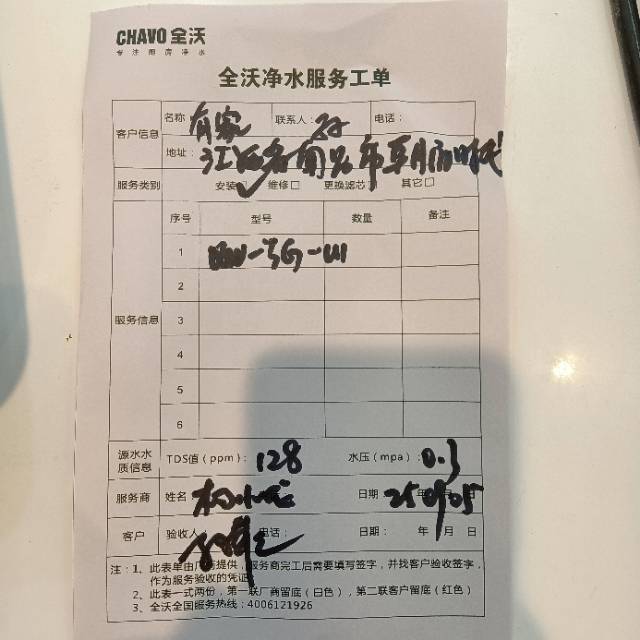 CHAVO 全沃
专注厨房净水
全沃净水服务工单
客户信息
名称 有家 联系人: 电话:
地址: 江西省南昌市
服务类别 安装 维修□ 更换滤芯 其它□
服务信息
序号 型号 数量 备注
1
2
3
4
5
6
源水水质信息 TDS值(ppm): 128 水压(mpa): 0.3
服务商 姓名 日期 25 年 09 05
客户 验收人 电话: 日期: 年 月 日
注:1、此表单由厂商提供,服务商完工后需要填写签字,并找客户验收签字,
作为服务验收的凭证
2、此表一式两份,第一联厂商留底(白色),第二联客户留底(红色)
3、全沃全国服务热线:4006121926